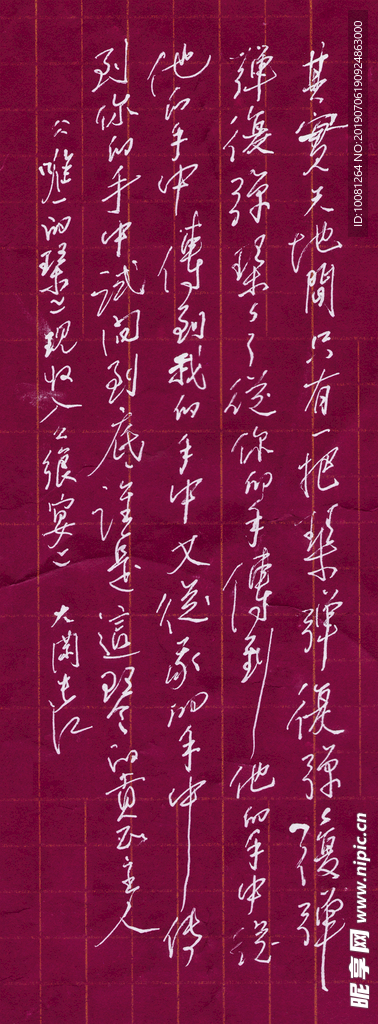 其實天地間只有一把琴彈復彈復彈
彈復彈琴從你的手傳到他的手中從
他的手中傳到我的手中又從我的手中傳
到你的手中試問到底誰是這琴的真正主人
《唯一的琴》現收入《飨宴》 大蘭長江
ID:10081264 NO:20190706190924863000
昵享网 www.nipic.cn